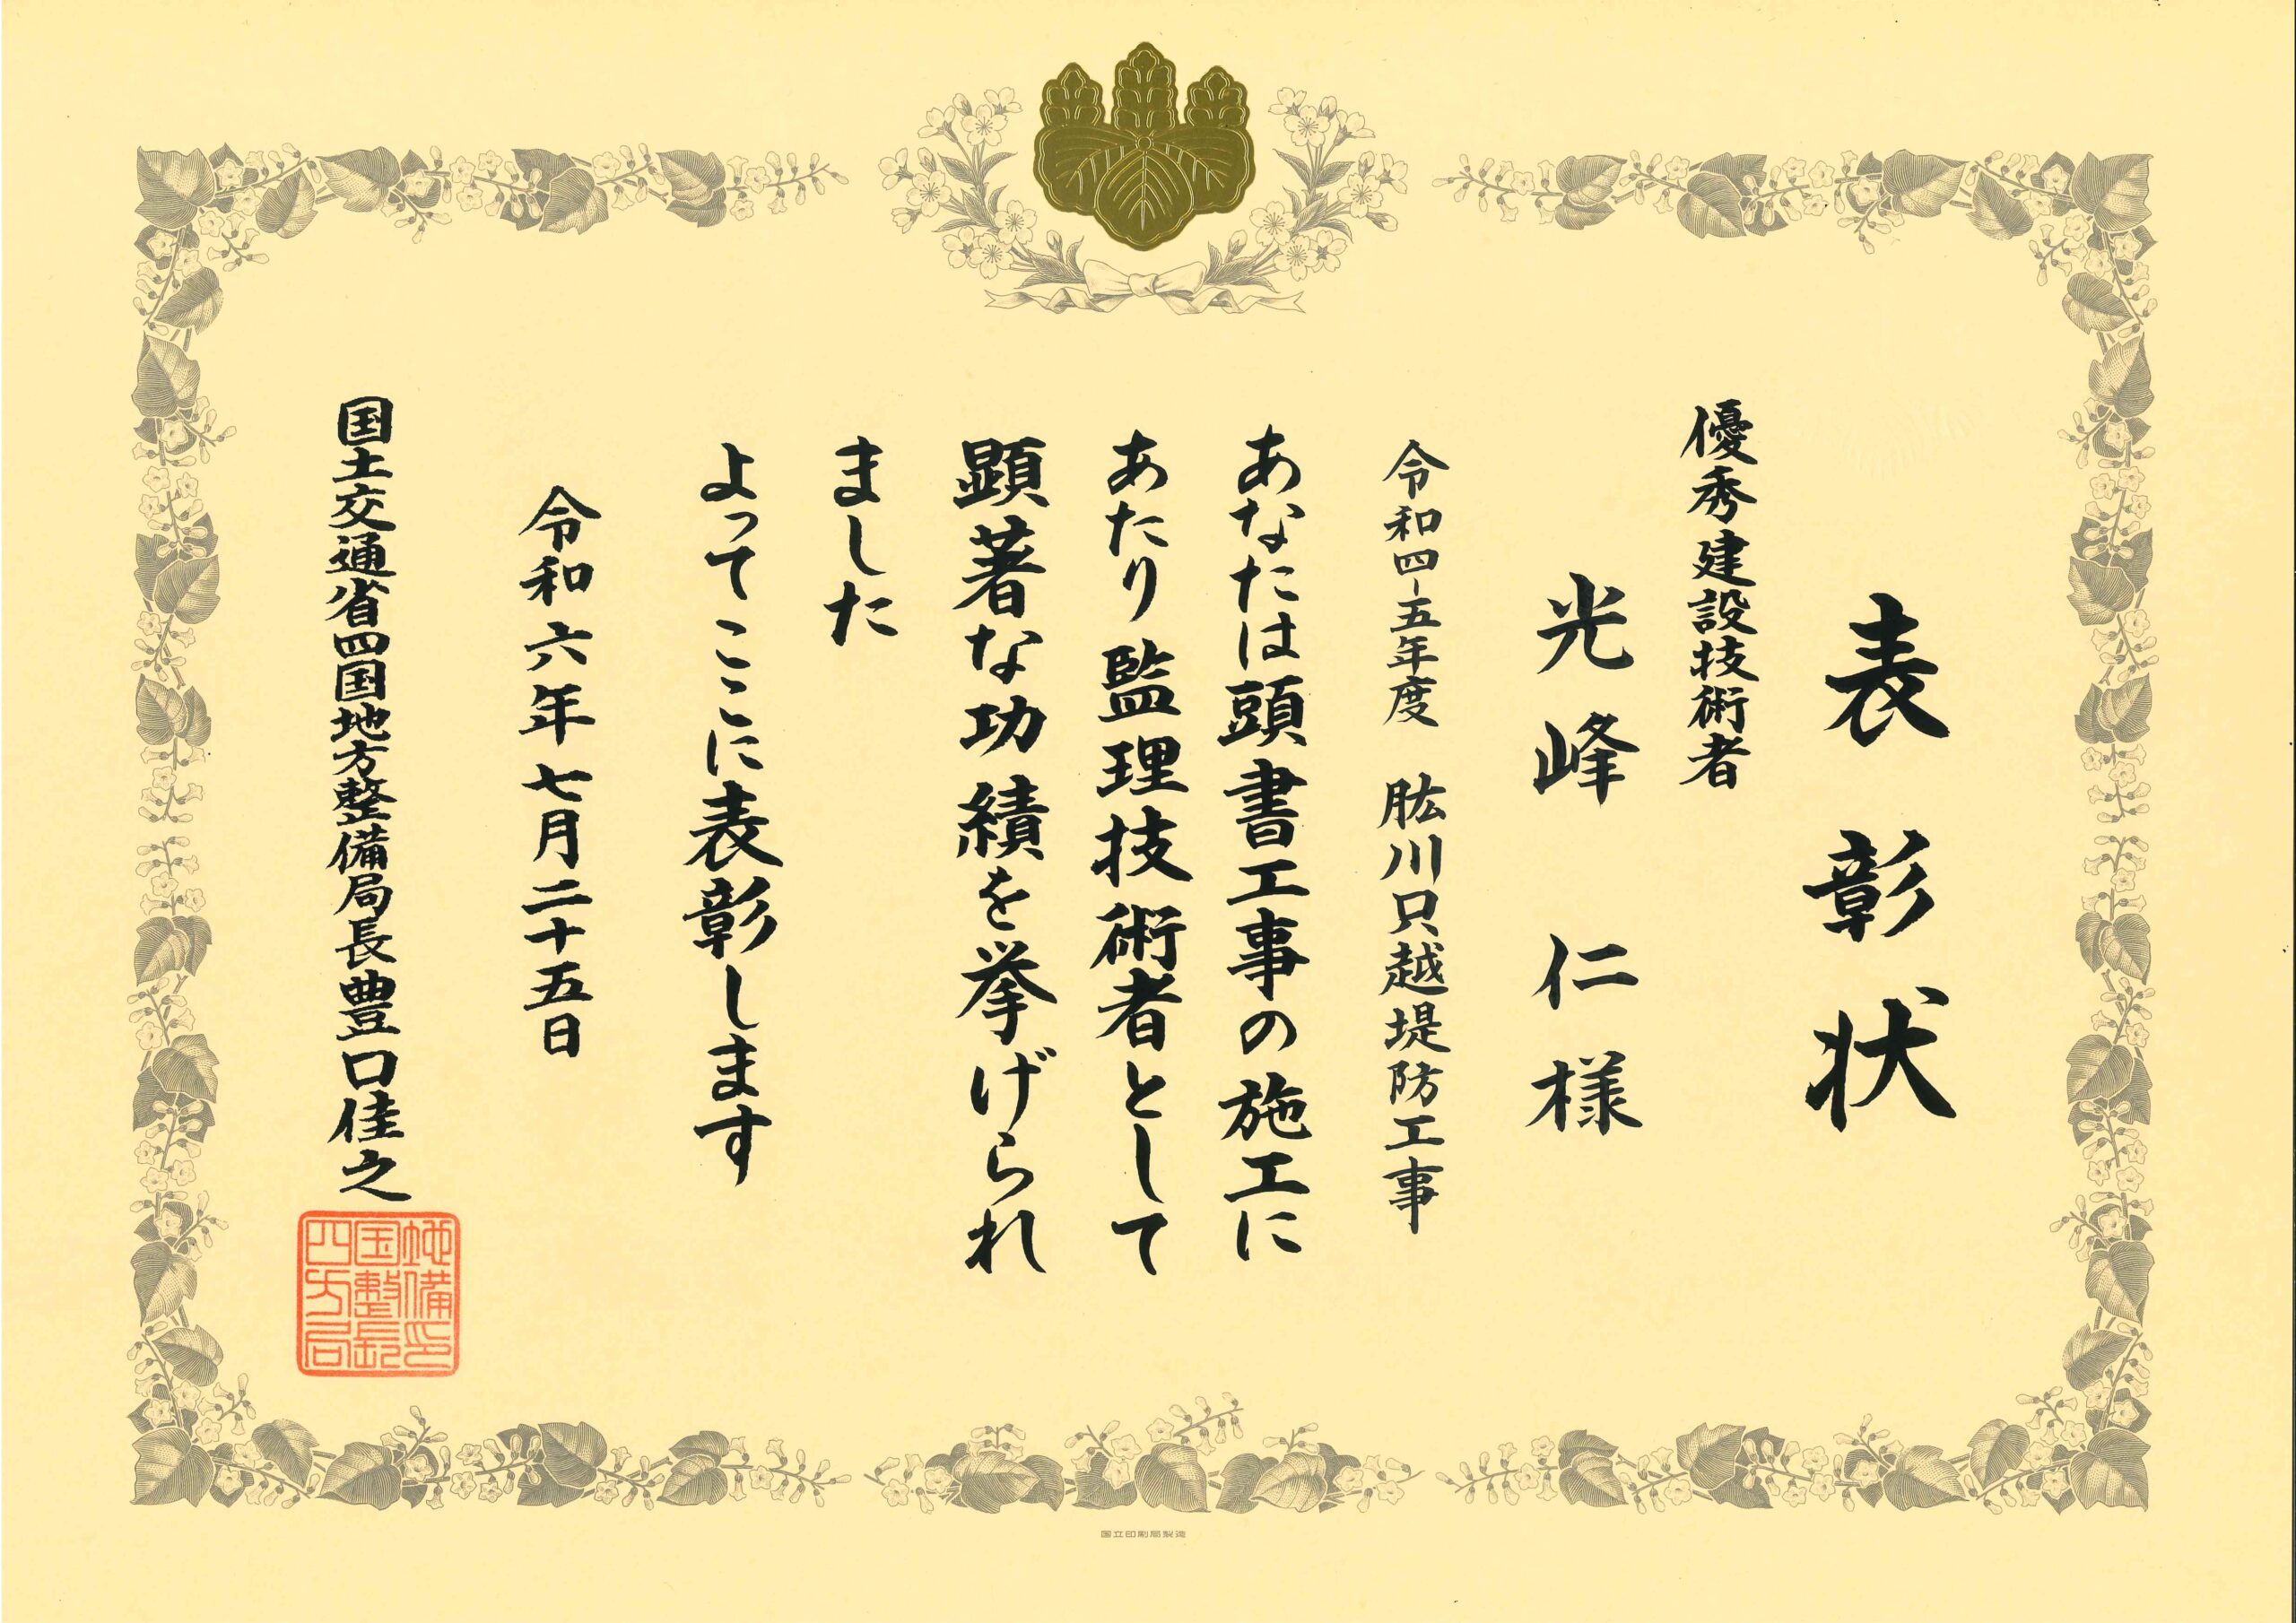 表彰状
優秀建設技術者
光峰 仁様
令和四-五年度 肱川只越堤防工事
あなたは頭書工事の施工に
あたり監理技術者として
顕著な功績を挙げられ
ました
よってここに表彰します
令和六年七月二十五日
国土交通省四国地方整備局長豊口佳之
四国地
方整備
局長印
国立印刷局製造